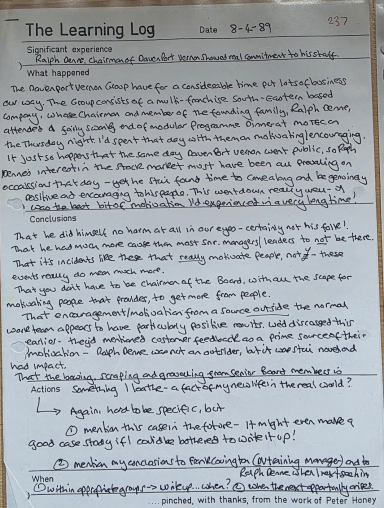 The Learning Log Date 8-4-89 237
Significant experience
Ralph Denne, chairman of Davenport Vernon showed real commitment to his staff.
What happened
The Davenport Vernon Group have for a considerable time put lots of business
our way. The Group consists of a multi-franchise South-Eastern based
company, whose Chairman and member of the founding family, Ralph Denne,
attended a fairly end of modular Programme Dinner at MOTEC on
the Thursday night. I'd spent that day with them on motivating/encouraging.
It just so happens that the same day Davenport Vernon went public, so Ralph
Denne's interest in the stock market must have been all prevailing on
occasions that day - yet he still found time to come along and be genuinely
positive and encouraging to his people. This went down really well - it
was the best bit of motivation I'd experienced in a very long time!
Conclusions
That he did himself no harm at all in our eyes - certainly not his folks'!
That he had much more cause than most snr. managers/leaders to not be there.
That it's incidents like these that really motivate people, - these
events really do mean much more.
That you don't have to be Chairman of the Board, with all the scope for
motivating people that provides, to get more from people.
That encouragement/motivation from a source outside the normal
work team appears to have particularly positive results. We'd discussed this
earlier - they'd mentioned customer feedback as a prime source of their
motivation - Ralph Denne was not an outsider, but it was still novel and
had impact.
That the bowing, scraping and grovelling from Senior Board members is
Actions something I loathe - a fact of my new life in the real world?
Again hard to be specific, but
① mention this case in the future - it might even make a
good case study if I could be bothered to write it up!
② mention my conclusions to (DV training manager) and to
Ralph Denne when I next see him
When
① within appropriate groups → write up... when? ② when the next opportunity arises.
.... pinched, with thanks, from the work of Peter Honey